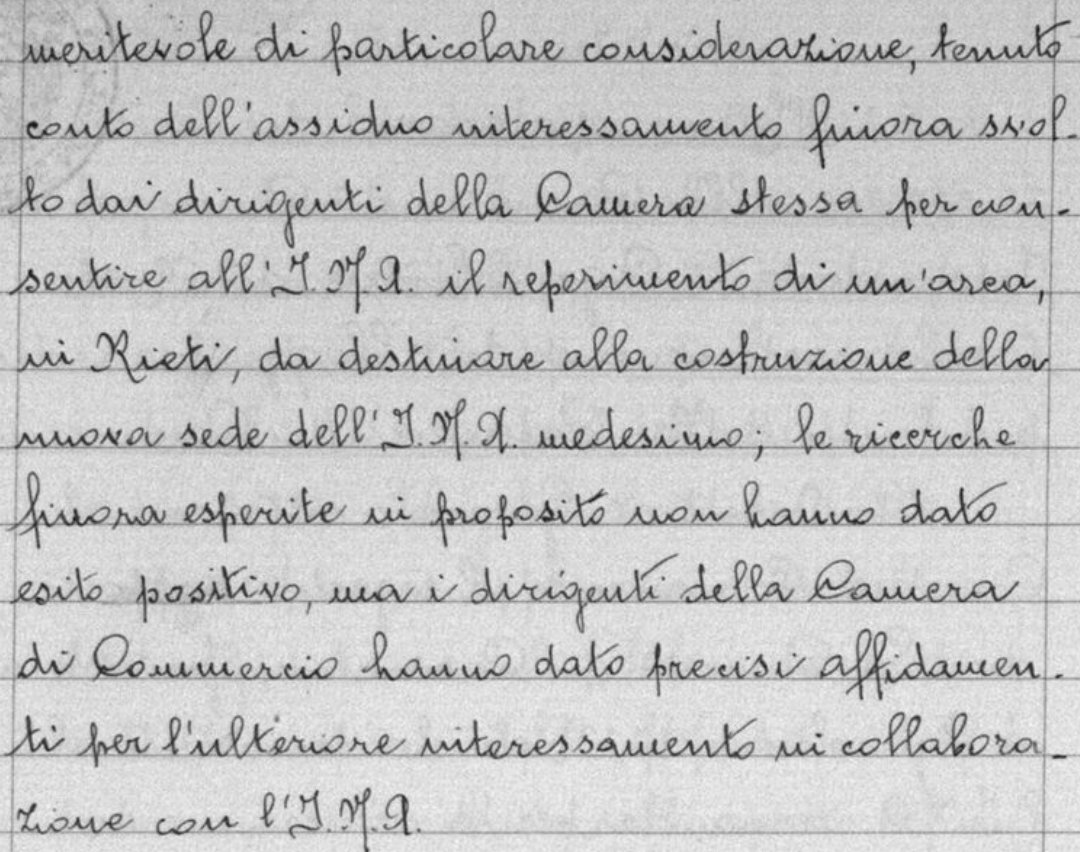 meritevole di particolare considerazione, tenuto
conto dell'assiduo interessamento finora svol-
to dai dirigenti della Camera stessa per con-
sentire all'I.N.A. il reperimento di un'area,
in Rieti, da destinare alla costruzione della
nuova sede dell'I.N.A. medesimo; le ricerche
finora esperite in proposito non hanno dato
esito positivo, ma i dirigenti della Camera
di Commercio hanno dato precisi affidamen-
ti per l'ulteriore interessamento in collabora-
zione con l'I.N.A.